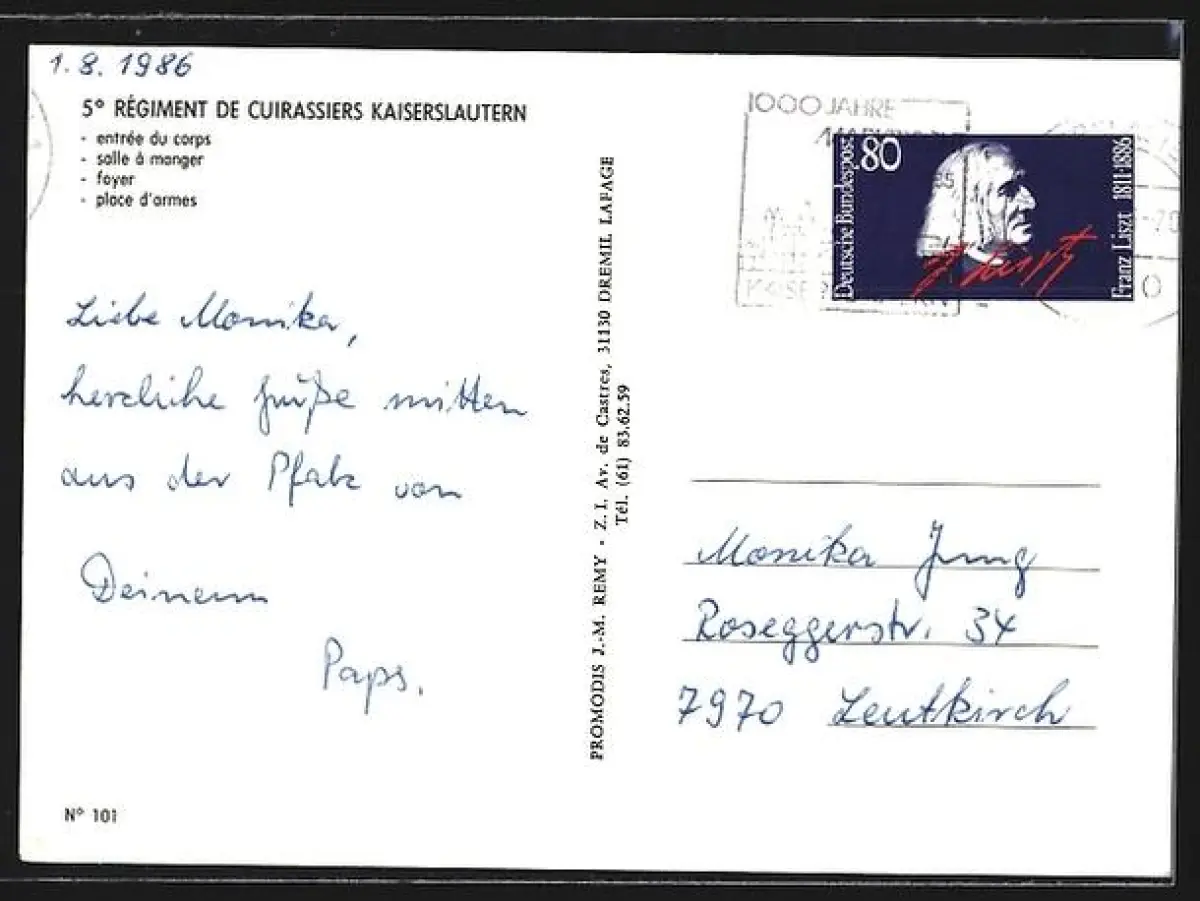 1. 8. 1986
5° RÉGIMENT DE CUIRASSIERS KAISERSLAUTERN
- entrée du corps
- salle à manger
- foyer
- place d'armes
Liebe Monika,
herzliche Grüße mitten
aus der Pfalz von
Deinem
Paps.
N° 101
PROMODIS J.-M. REMY · Z. I. Av. de Castres, 31130 DREMIL LAFAGE
Tél. (61) 83.62.59
1000 JAHRE
Deutsche Bundespost
80
F. Liszt
Franz Liszt 1811-1886
Monika Jung
Roseggerstr. 34
7970 Leutkirch